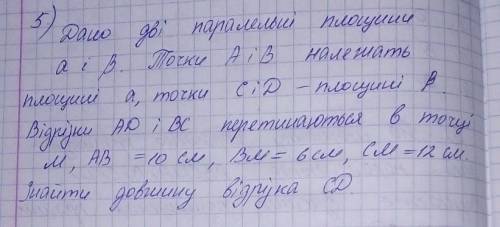 5) Дано дві паралельні площини
а і β. Точки А і В належать
площині а, точки С і D – площині β.
Відрізки AD і BC перетинаються в точці
М, AB = 10 см, BM = 6 см, CM = 12 см.
Знайти довжину відрізка CD.